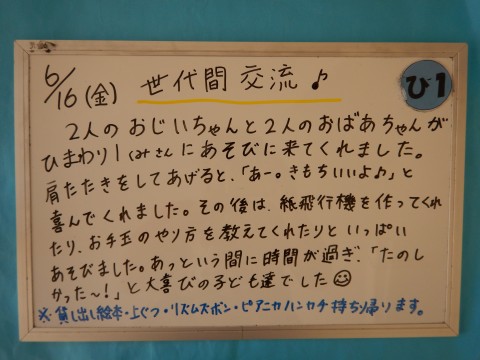 6/16(金) 世代間交流♪
ひ1
2人のおじいちゃんと2人のおばあちゃんが
ひまわり1くみさんにあそびに来てくれました。
肩たたきをしてあげると、「あー。きもちいいよ♪」と
喜んでくれました。その後は、紙飛行機を作ってくれ
たり、お手玉のやり方を教えてくれたりといっぱい
あそびました。あっという間に時間が過ぎ、「たのし
かった〜!」と大喜びの子ども達でした☺
※貸し出し絵本・上ぐつ・リズムズボン・ピアニカハンカチ持ち帰ります。